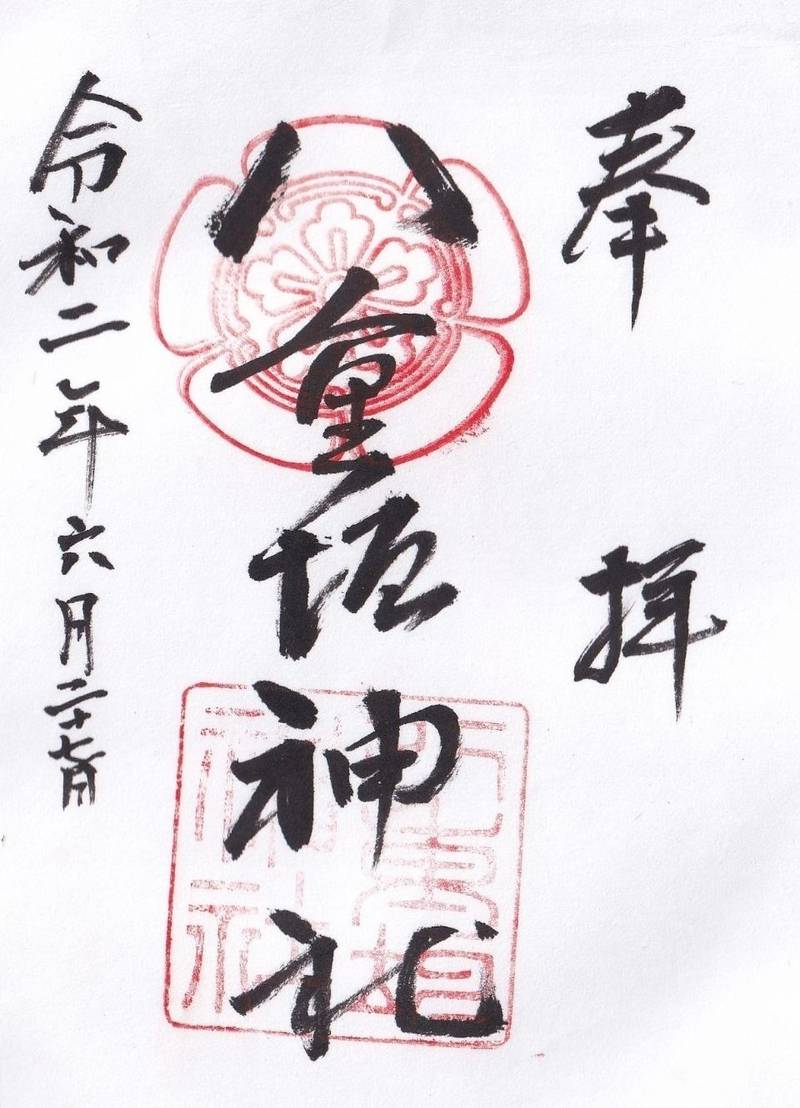 奉拝
八重垣神社
令和二年六月二十七日
八重垣
神社